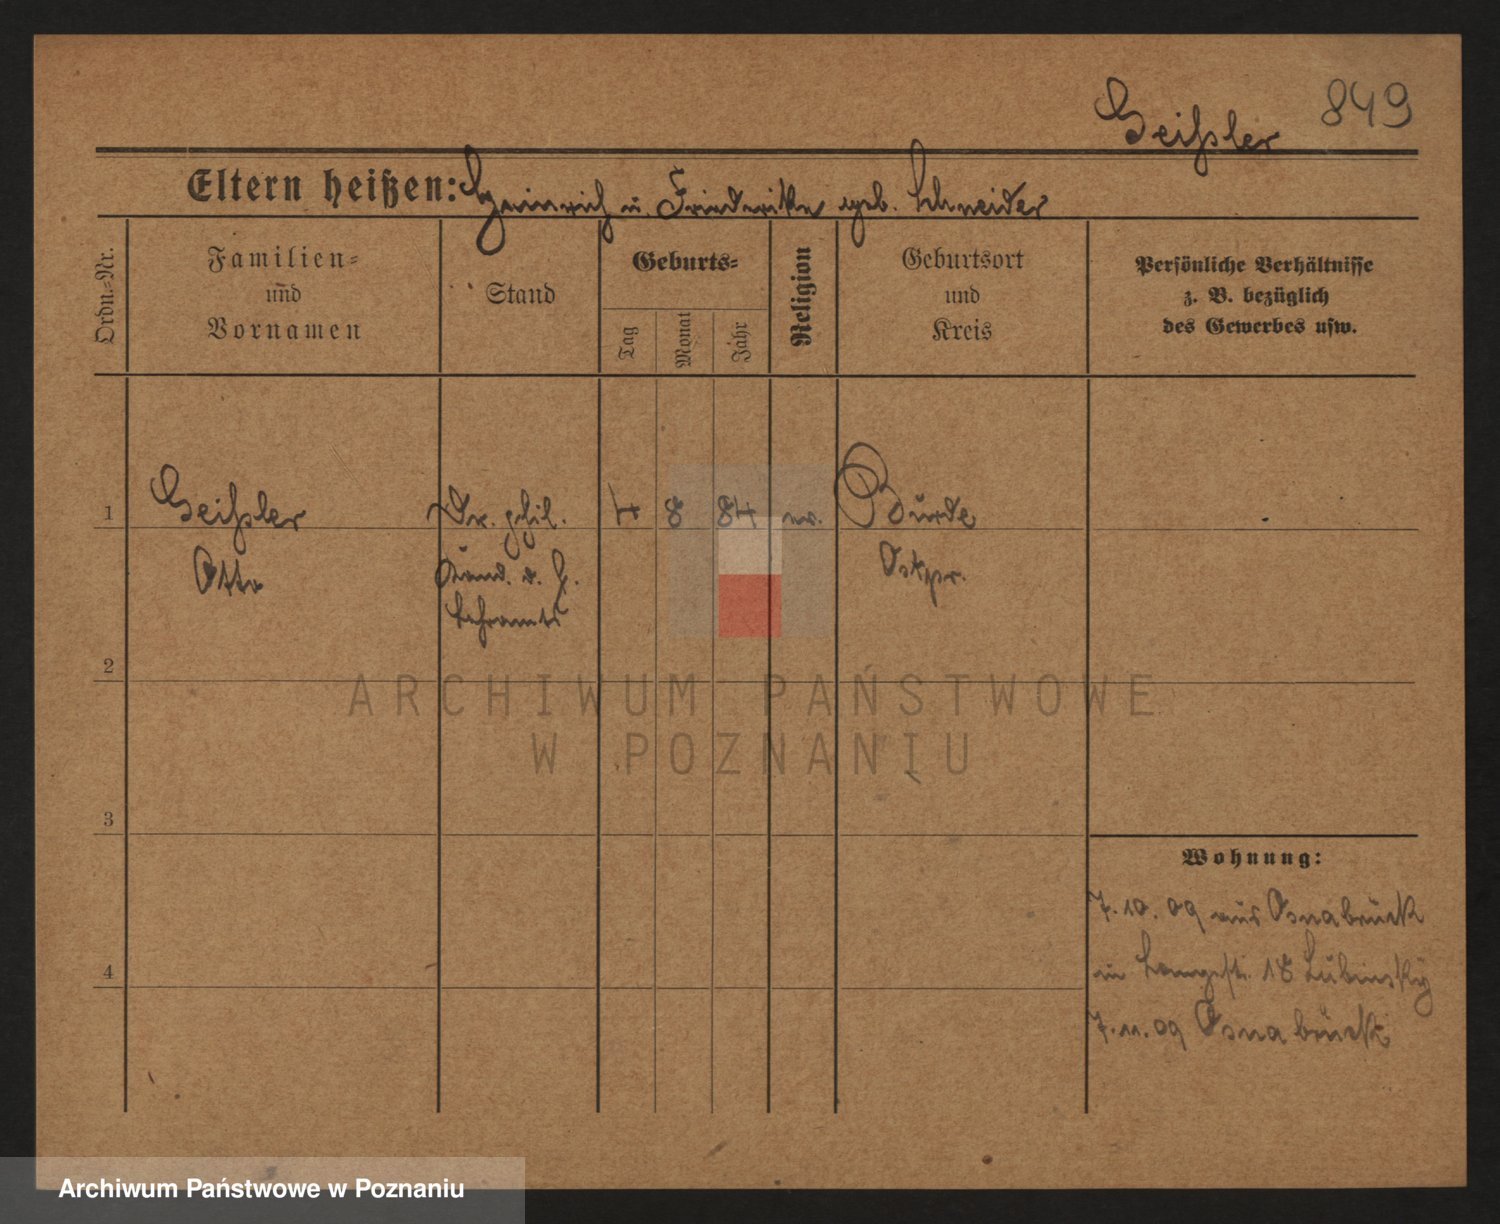 849
Geißler
Eltern heißen: Heinrich u. Friederike geb. Schneider
Ordn.-Nr.
Familien-
und
Vornamen
Stand
Geburts-
Tag
Monat
Jahr
Religion
Geburtsort
und
Kreis
Persönliche Verhältnisse
z. B. bezüglich
des Gewerbes usw.
1 Geißler Dr. phil. 4 8 84 ev. Bürde
Otto Kand. d. h. Ostpr.
Lehramts
2
ARCHIWUM PAŃSTWOWE
W POZNANIU
3
Wohnung:
7.10.09 aus Osnabrück
in Langestr. 18 Lubinsky
4
7.11.09 Osnabrück
Archiwum Państwowe w Poznaniu